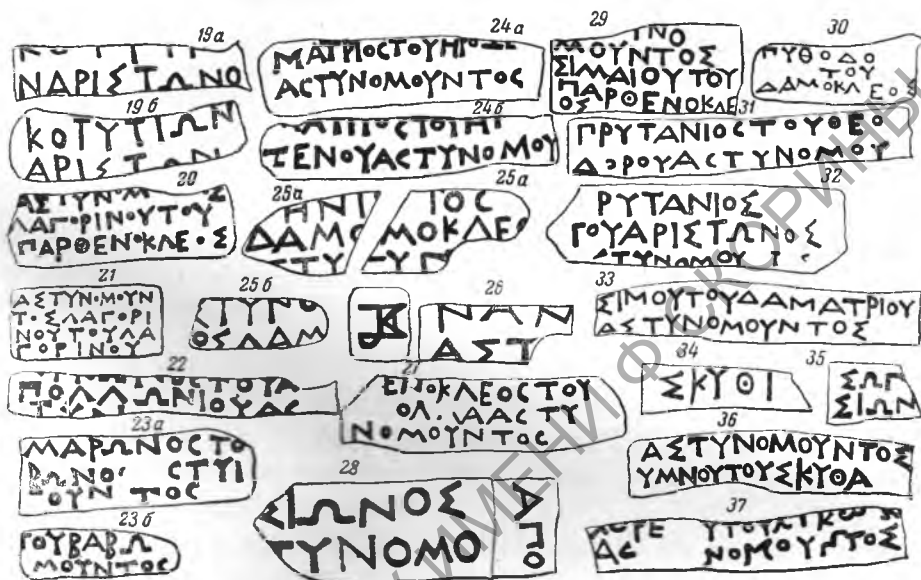 19а
ΝΑΡΙΣΤΩΝΟ
19б
ΚΟΤΥΤΙΩΝ
ΑΡΙΣΤΩΝ
20
ΑΣΤΥΝΟΜ
ΛΑΓΟΡΙΝΟΥΤΟΥ
ΠΑΡΘΕΝΟΚΛΕΟΣ
21
ΑΣΤΥΝΟΜΟΥΝ
ΤΟΣΛΑΓΟΡΙ
ΝΟΥΤΟΥΛΑ
ΓΟΡΙΝΟΥ
22
23а
ΜΑΡΩΝΟΣΤΟ
23б
ΓΟΥΒΑΒΩ
ΜΟΥΝΤΟΣ
24а
ΜΑΤΡΙΟΣΤΟΥΗΡΟ
ΑΣΤΥΝΟΜΟΥΝΤΟΣ
24б
ΤΕΝΟΥΑΣΤΥΝΟΜΟΥ
25а
ΗΝΙ
ΔΑΜΟ
25а
ΤΟΣ
ΜΟΚΛΕΟ
25б
ΣΤΥΝΟ
ΟΣΛΑΜ
26
ΝΑΝ
ΑΣΤ
27
ΟΛ.ΙΑΑΣΤΥ
ΝΟΜΟΥΝΤΟΣ
28
ΣΙΩΝΟΣ
ΤΥΝΟΜΟ
ΑΠΟ
29
ΜΟΥΝΤΟΣ
ΣΙΜΑΙΟΥΤΟΥ
ΠΑΡΘΕΝΟΚΛΕ
ΟΣ
30
ΠΥΘΟΔΟ
ΤΟΥ
ΔΑΜΟΚΛΕΟΣ
31
ΠΡΥΤΑΝΙΟΣΤΟΥΘΕΟ
ΔΩΡΟΥΑΣΤΥΝΟΜΟΥ
32
ΡΥΤΑΝΙΟΣ
ΓΟΥΑΡΙΣΤΩΝΟΣ
ΣΤΥΝΟΜΟΥ
33
ΣΙΜΟΥΤΟΥΔΑΜΑΤΡΙΟΥ
ΑΣΤΥΝΟΜΟΥΝΤΟΣ
34
ΣΚΥΘΙ
35
ΣΩΓ
ΣΙΩΝ
36
ΑΣΤΥΝΟΜΟΥΝΤΟΣ
ΥΜΝΟΥΤΟΥΣΚΥΘΑ
37
ΝΟΜΟΥΝΤΟΣ
ИМЕНИ Ф СКОРИНЫ